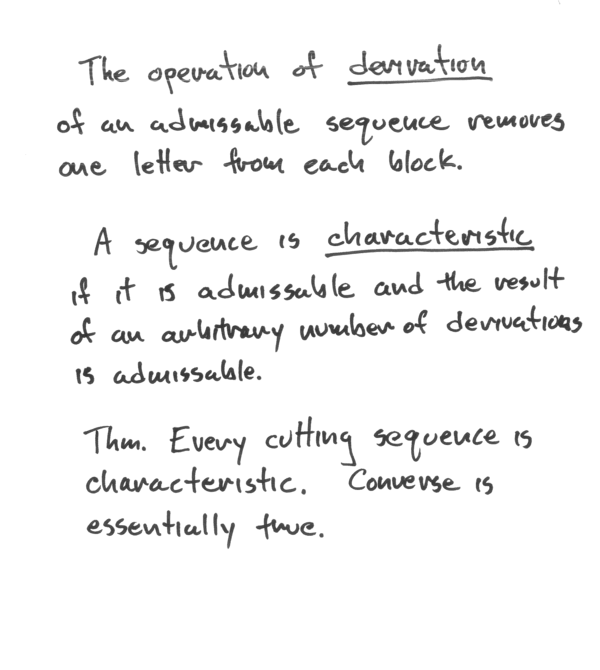 The operation of derivation
of an admissable sequence removes
one letter from each block.
A sequence is characteristic
if it is admissable and the result
of an arbitrary number of derivations
is admissable.
Thm. Every cutting sequence is
characteristic. Converse is
essentially true.